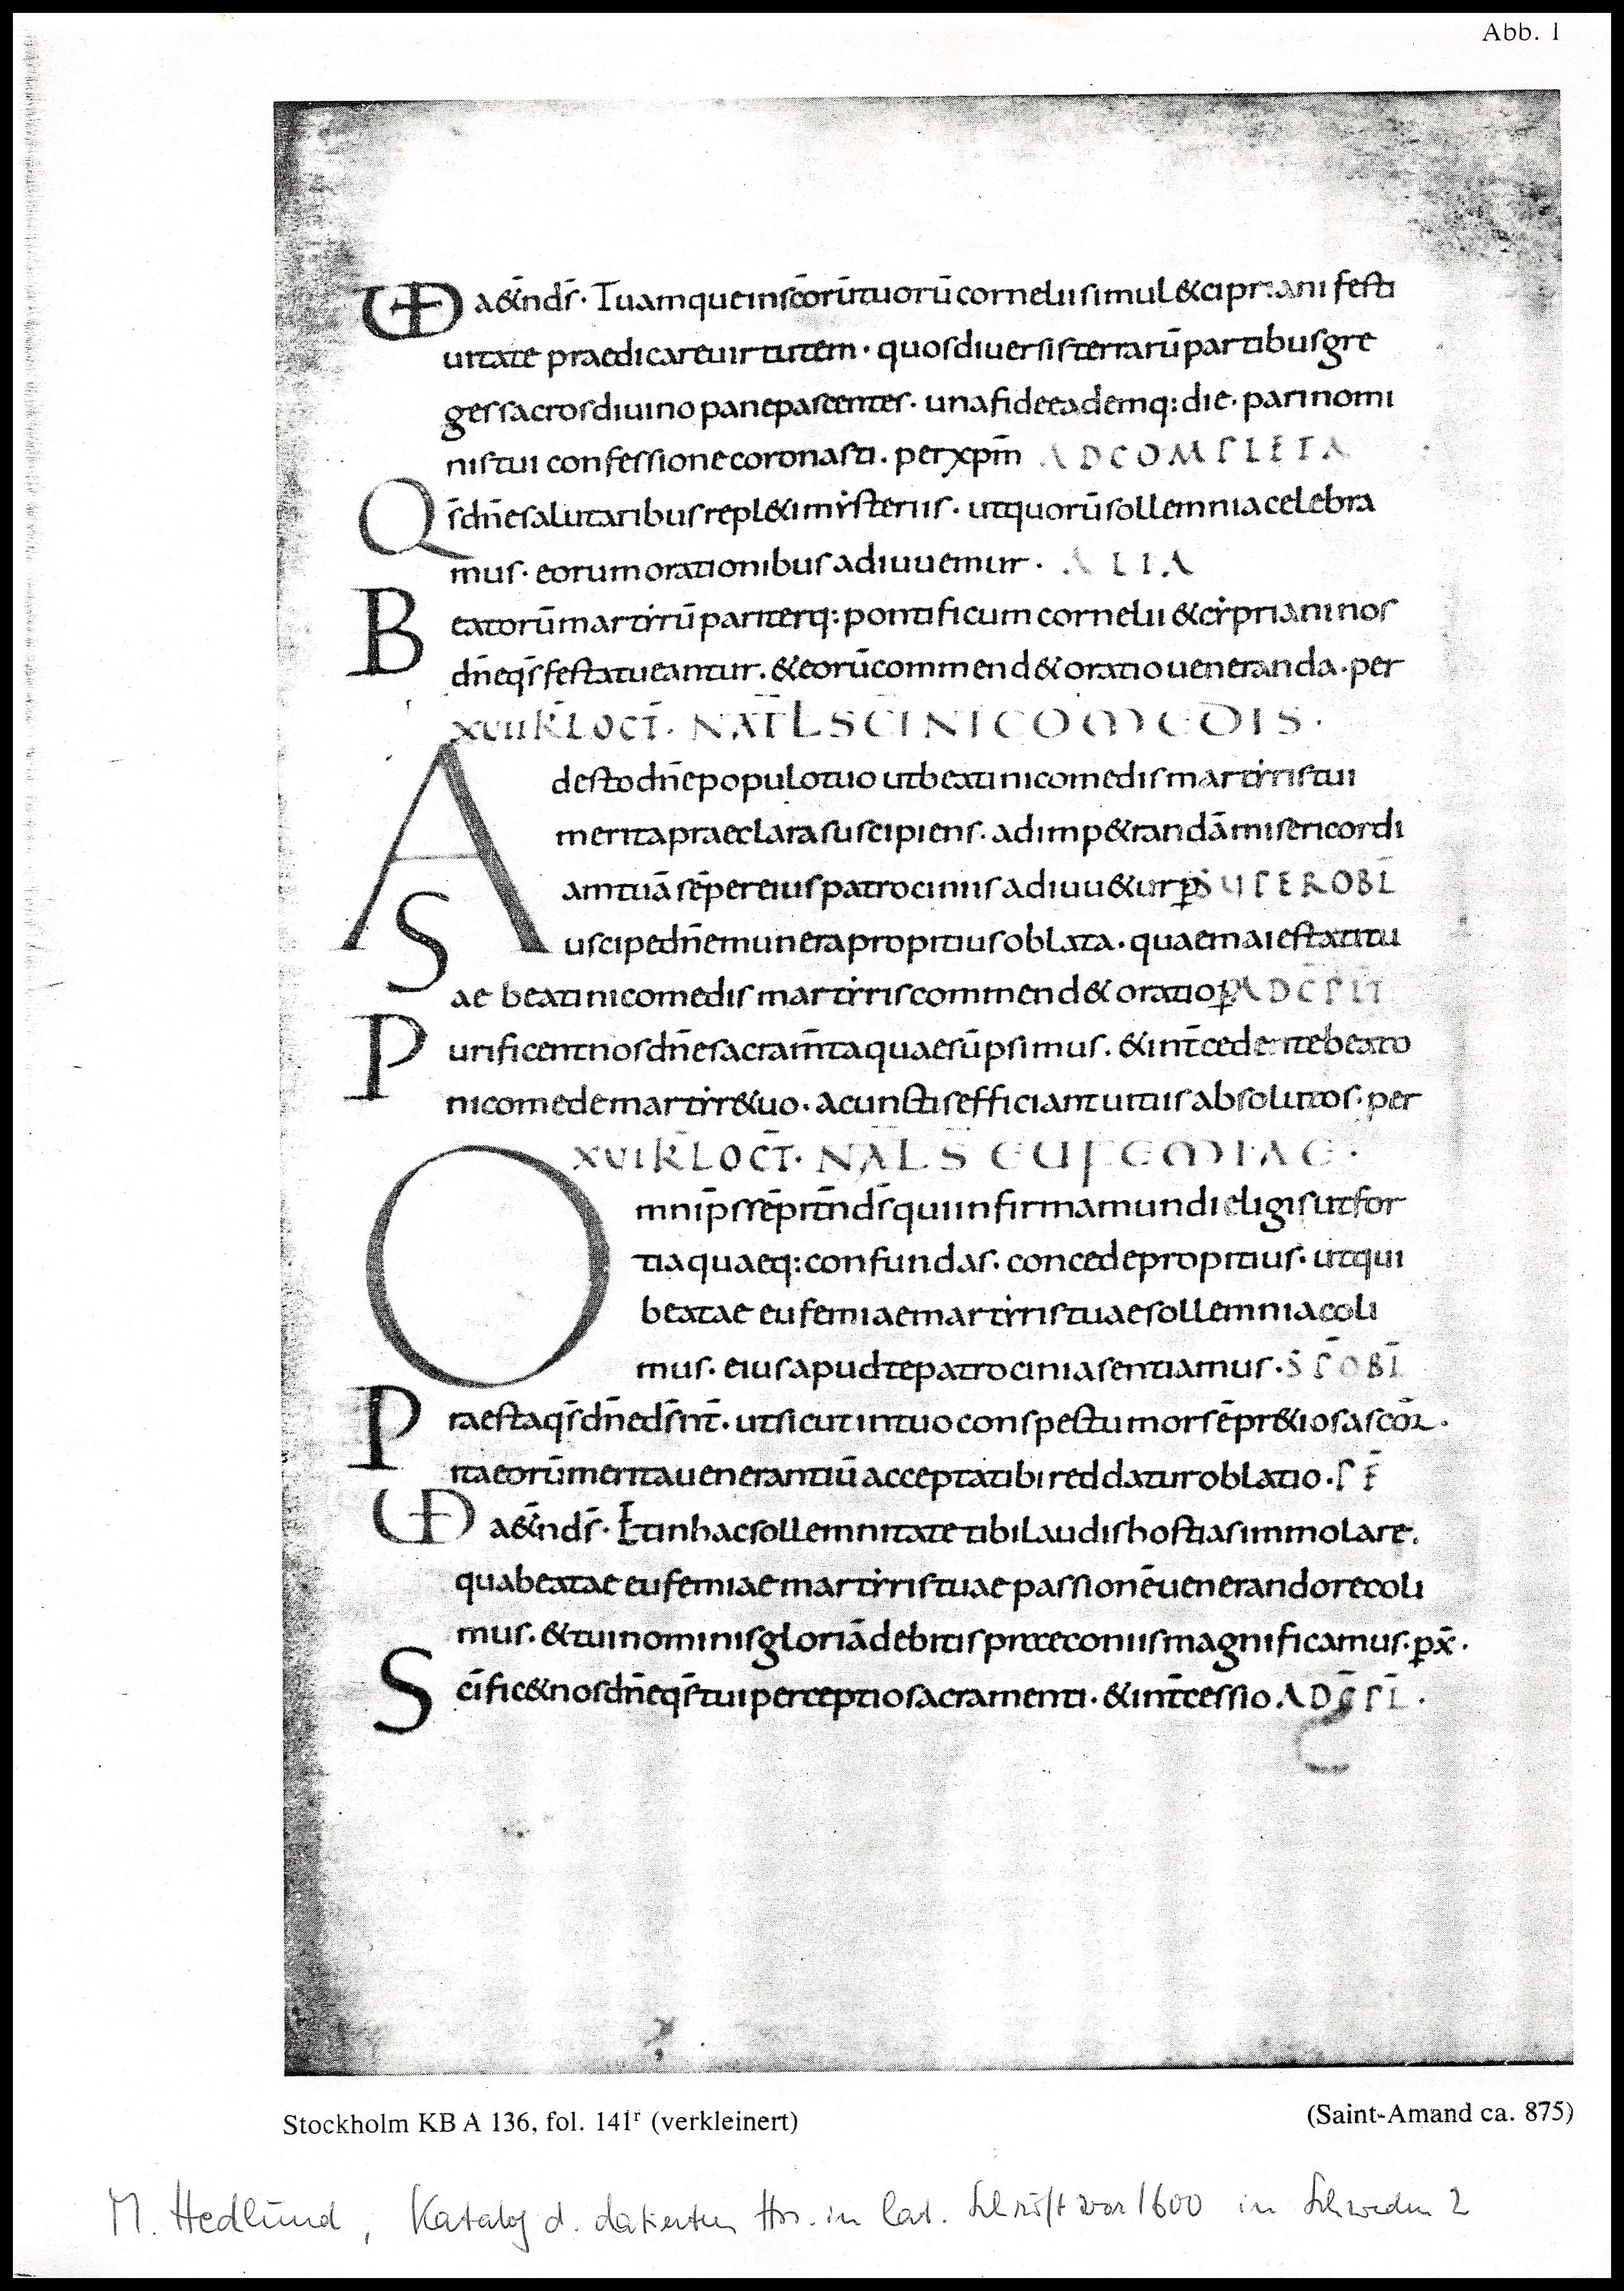 Abb. 1
VD a&̄nds̄· Tuamque in sc̄orū tuorū cornelii simul & cipriani festi
uitate praedicare uirtutem · quos diuersis terrarū partibus gre
ges sacros diuino pane pascentes· una fide eademq: die· pari nomi
nis tui confessione coronasti. per xpm̄ AD COMPLETA
Qs̄ dn̄e salutaribus repl&i mẏsteriis · ut quorū sollemnia celebra
mus· eorum orationibus adiuuemur · ALIA
Beatorū martẏrū pariterq: pontificum cornelii & cẏpriani nos
dn̄e qs̄ festa tueantur. & eorū commend& oratio ueneranda· per
XVII KL̄ OCT̄· NAT̄L SC̄I NICOMEDIS·
Adesto dn̄e populo tuo ut beati nicomedis martẏris tui
merita praeclara suscipiens· ad imp&randā misericordi
am tuā sēper eius patrociniis adiuu&ur p̱ SUPER OBL̄
Suscipe dn̄e munera propitius oblata· quae maiestati tu
ae beati nicomedis martẏris commend& oratio p̱ AD CPLT̄
Purificent nos dn̄e sacram̄ta quae sūpsimus. & int̄cedente beato
nicomede martẏre tuo· a cunctis efficiant uitiis absolutos· per
XVI KL̄ OCT̄· NAL̄ S EUFEMIAE·
Omnip̄s sēpit̄n ds̄ qui infirma mundi eligis ut for
tia quaeq: confundas· concede propitius· ut qui
beatae eufemiae martẏris tuae sollemnia coli
mus· eius apud te patrocinia sentiamus· S̄ P OBL̄
Praesta qs̄ dn̄e ds̄ nr̄t· ut sicut in tuo conspectu mors ē pr&iosa sc̄oꝝ·
ita eorū merita uenerantiū accepta tibi reddatur oblatio· PF̄
VD a&̄nds̄· Et in hac sollemnitate tibi laudis hostias immolare.
qua beatae eufemiae martẏris tuae passionē uenerando recoli
mus· & tui nominis gloriā debitis praeconiis magnificamus· p̱ x̄·
Sc̄ific& nos dn̄e qs̄ tui perceptio sacramenti· & int̄cessio AD C̄PL̄·
Stockholm KB A 136, fol. 141ʳ (verkleinert)
(Saint-Amand ca. 875)
M. Hedlund, Katalog d. datierten Hss. in lat. Schrift vor 1600 in Schweden 2